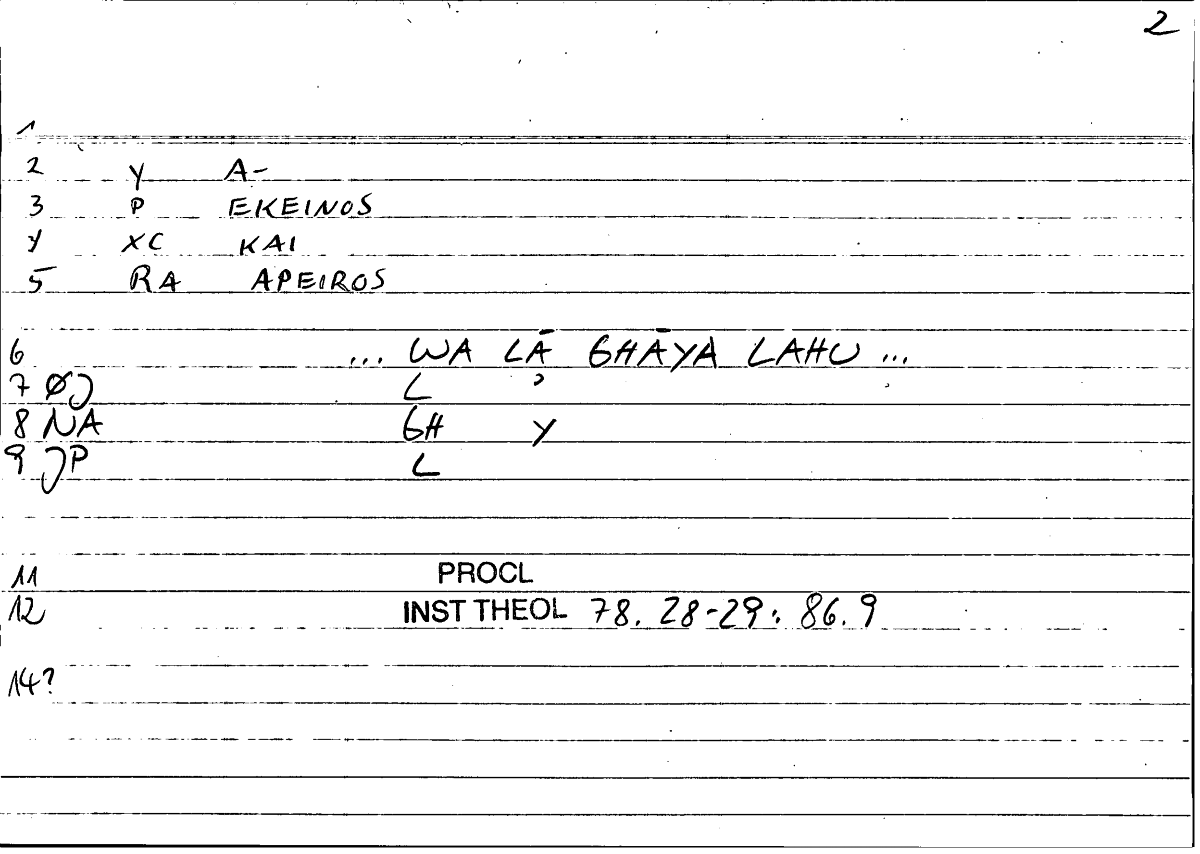 2
1
2 Y A-
3 P EKEINOS
4 XC KAI
5 RA APEIROS
6 ... WA LĀ GHĀYA LAHU ...
7 ØJ L ʾ
8 NA GH Y
9 JP L
11 PROCL
12 INST THEOL 78. 28-29; 86.9
14?